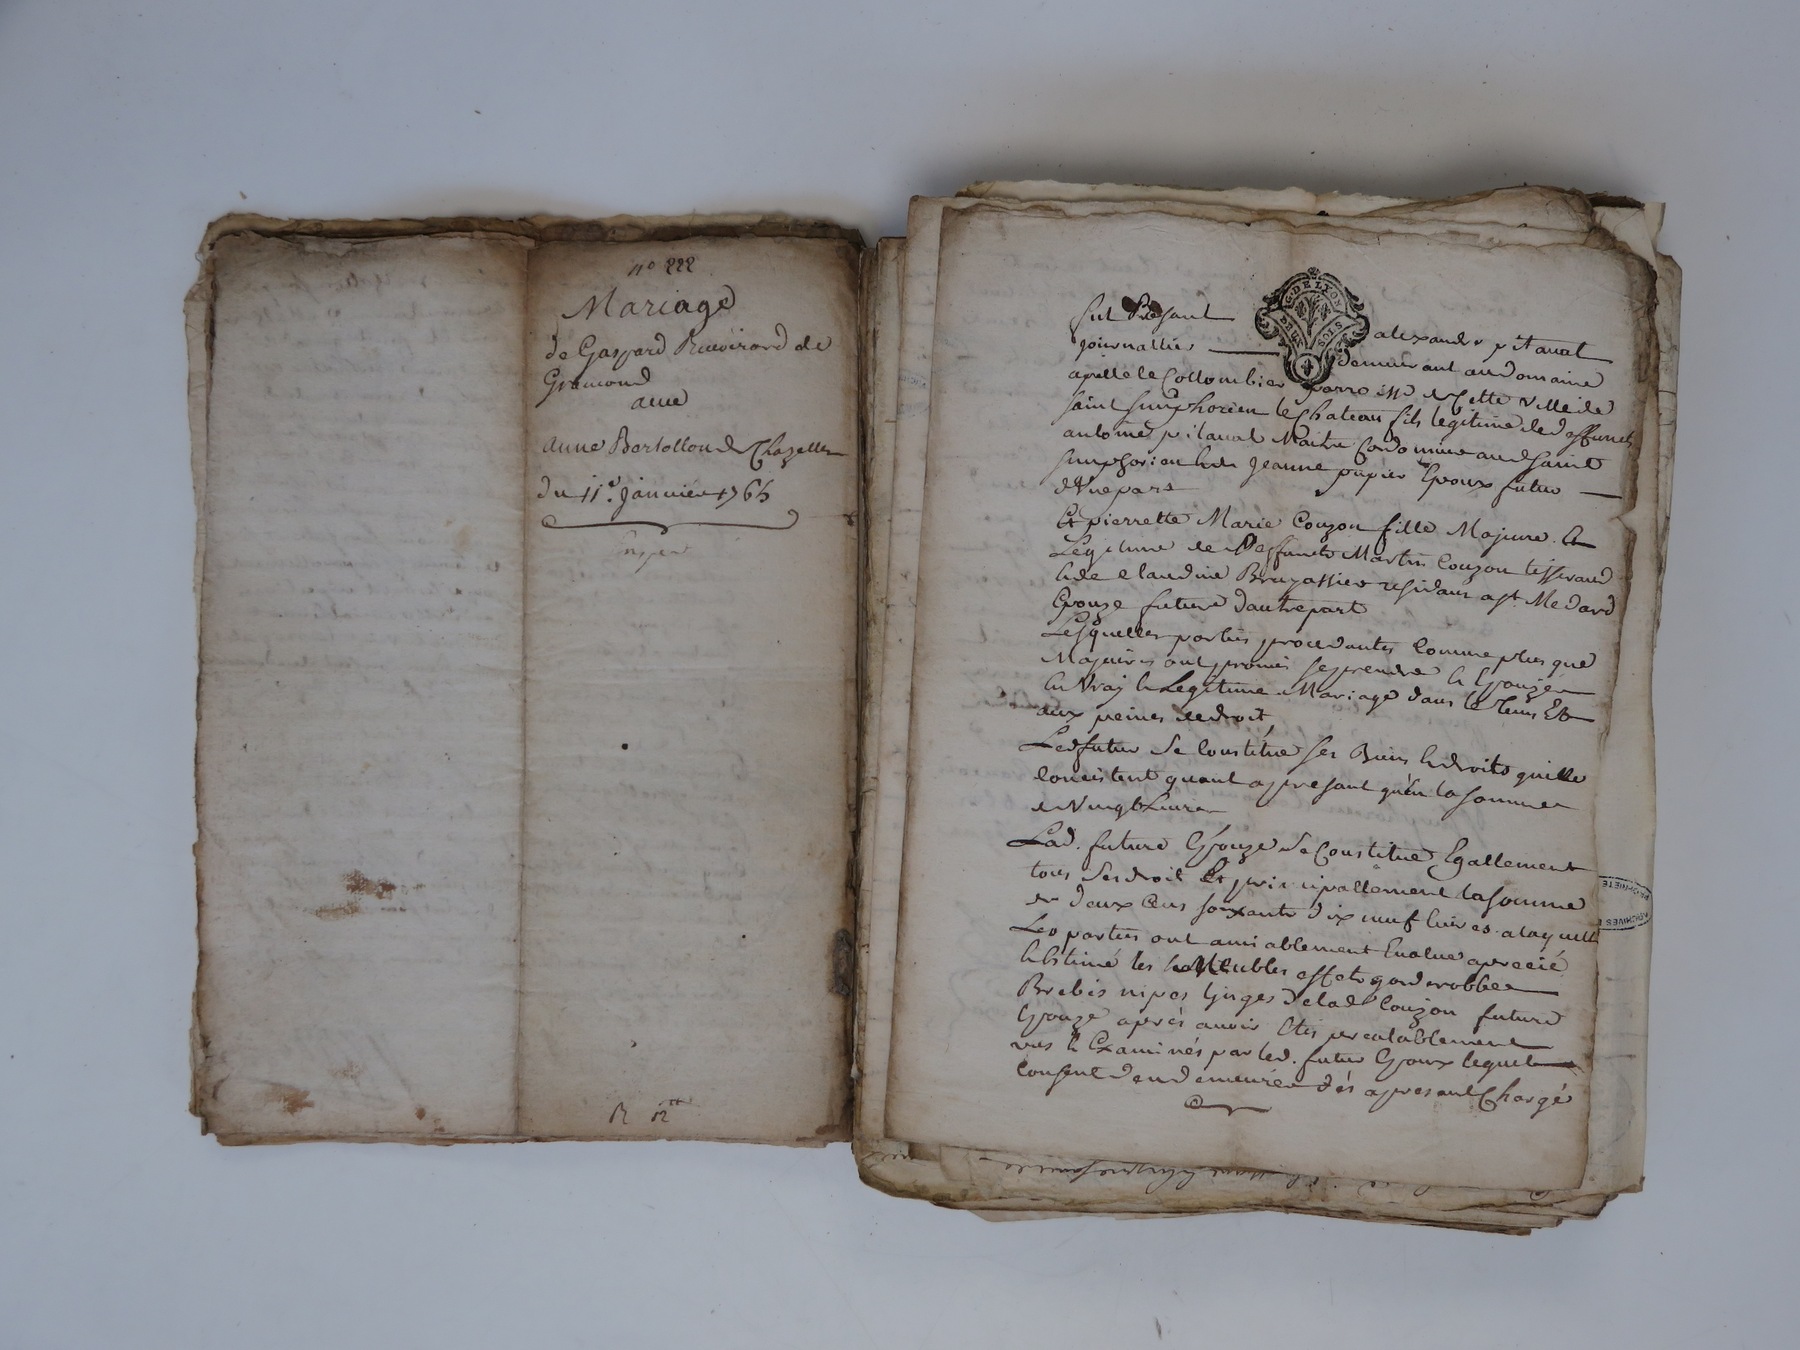 n.º 222
Mariage
de Gaspard Rivoirard de
Gramond
avec
anne Bertollon de Chazelle
du 11.e janvier 1765
R 12
G. DE LYON
DEUX SOLS
4
fut Present alexandre pitaval
journallier demeurant au domaine
apellé le Collombier parroisse de Cette ville de
saint simphorien le Chateau fils legitime de deffunts
antoine pitaval Maitre Cordonnier aud saint
simphorien & de jeanne papier Epoux futur
d'Une part
Et pierrette Marie Couzon fille Majeure &
Legitime de Deffunts Martin Couzon tisserand
& de Claudine Bruyassier residant a st. Medard
Epouze future d'autre part
Lesquelles parties procedantes Comme plus que
Majeures ont promis se prendre & Epouzer
En Vray & Legitime Mariage dans le tems Et
aux peines de droit,
Led futur se Constitue ses Biens & droits qui ne
Consistent quant a present qu'en la somme
de Vingt Livres
Lad. future Epouze se Constitue Egallement
tous ses droit Et principallement la somme
de deux Cens soixante dix neuf livres a laquelle
Les parties ont amiablement Evalué aprecié
& Estimé les Meubles effets garderobbe
Brebis nipes linges de lad Couzon future
Epouze aprés avoir Etés prealablement
vus & Examinés par led. futur Epoux lequel
Consent d'en demeurer dés a present Chargé
PROPRIETE
ARCHIVES